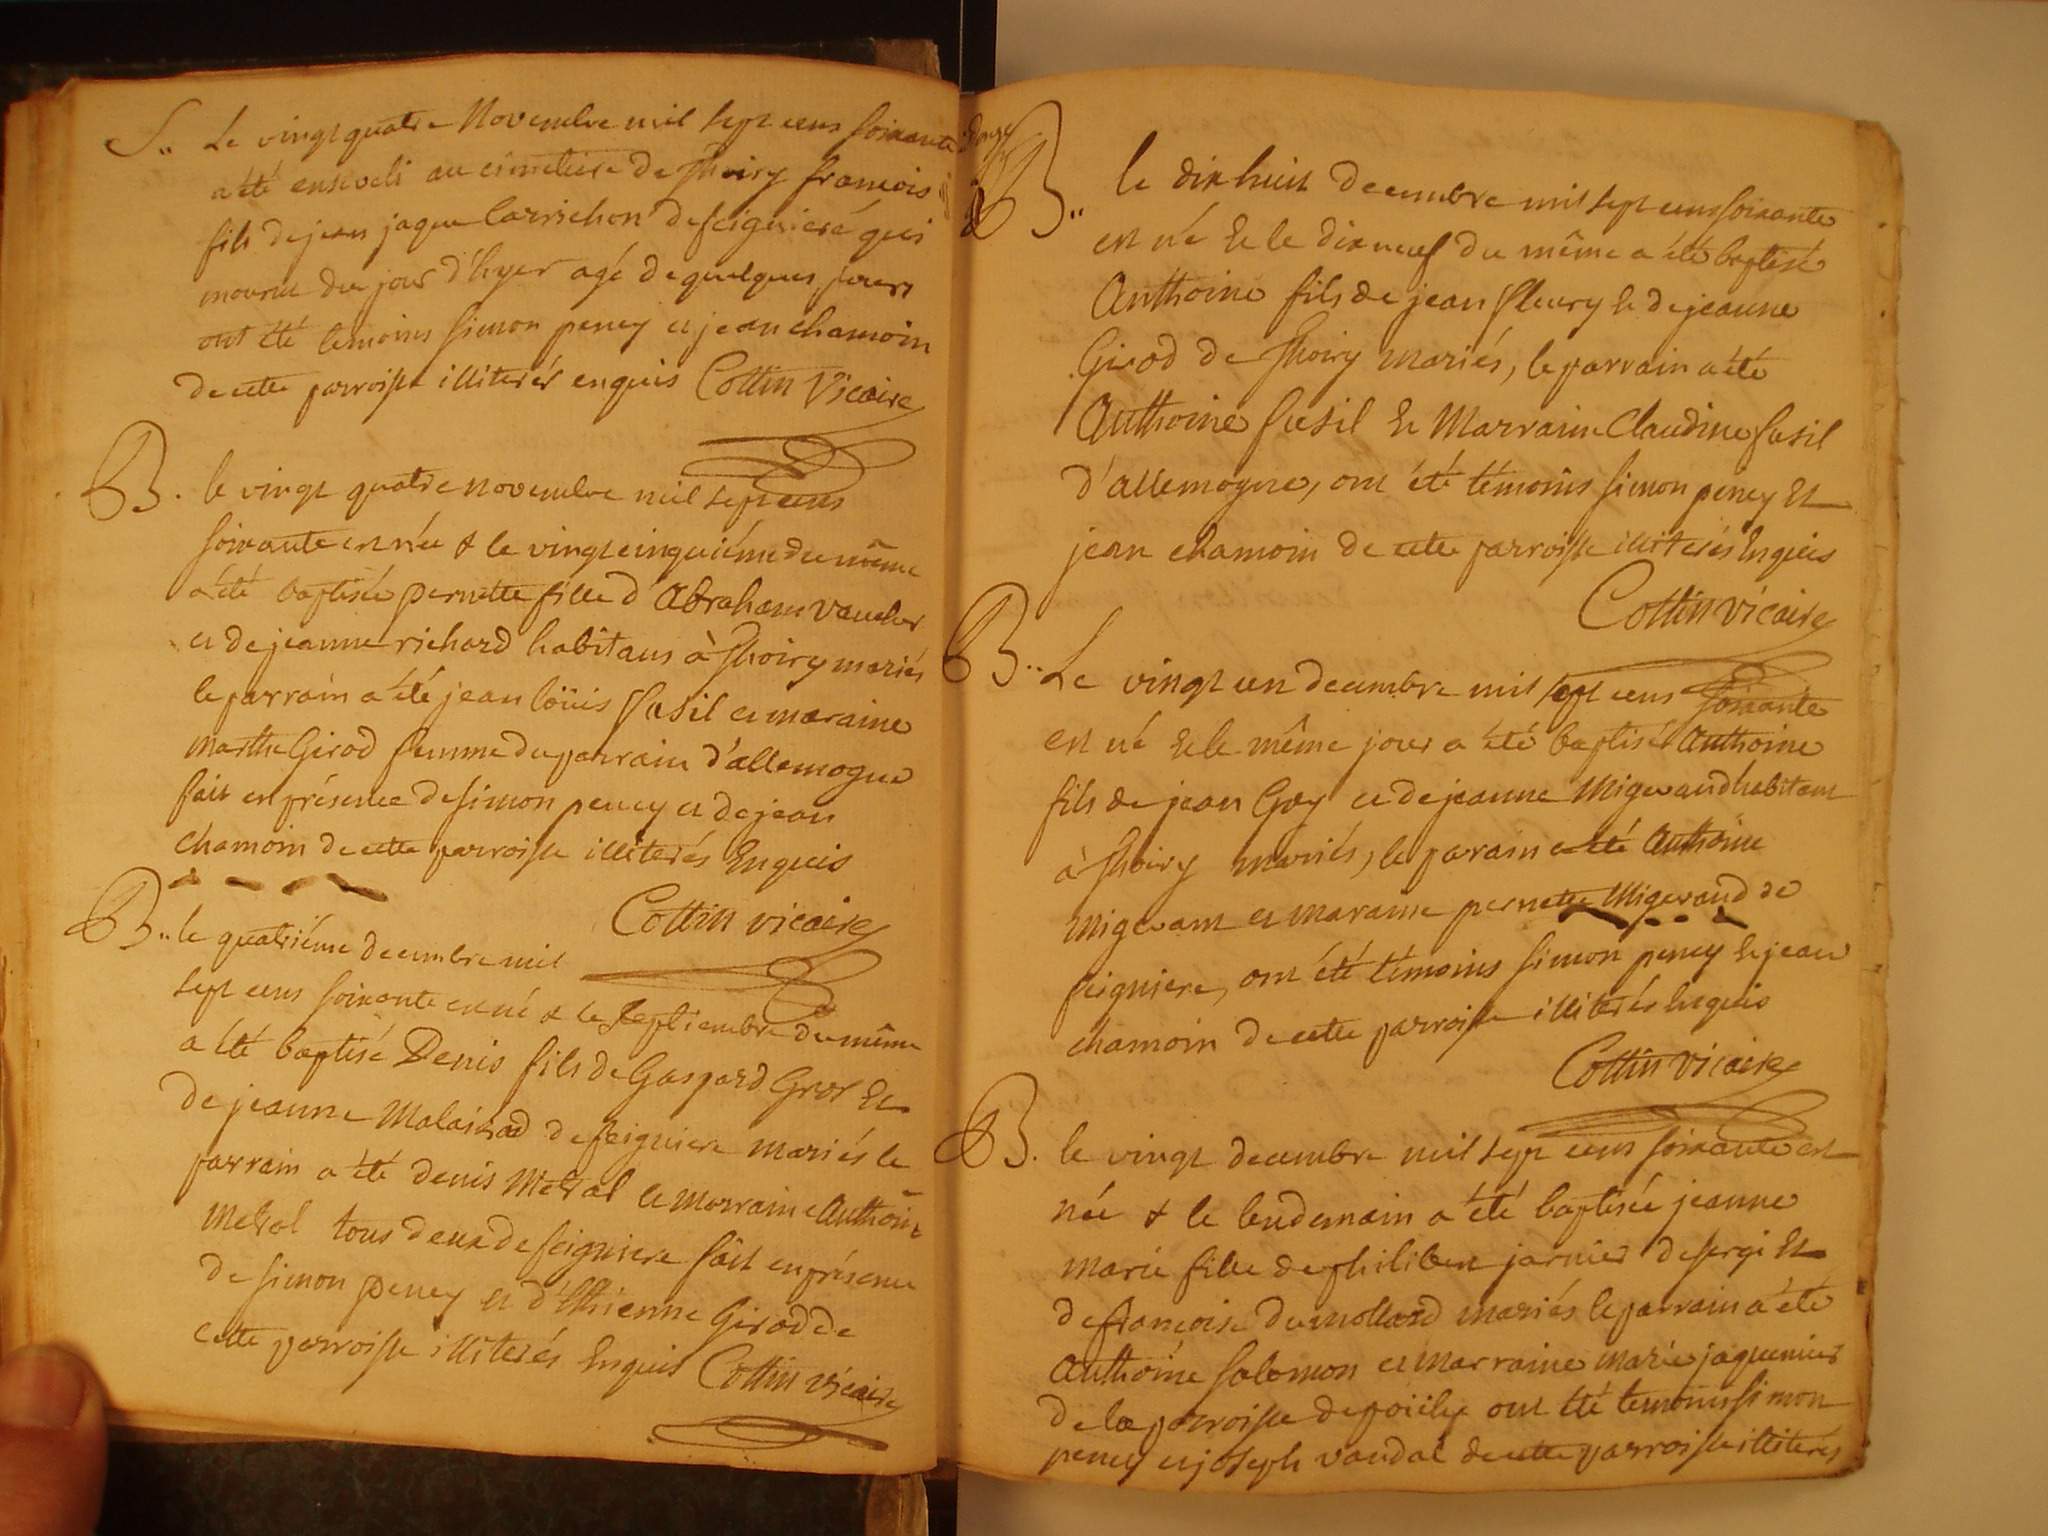 S.. Le vingt quatre Novembre mil sept cens soixante
a été enseveli au cimetiere de Thoiry francois
fils de jean jaque Carrichon de feigniere qui
mourut du jour d'hyer agé de quelques jours
ont été temoins simon peney et jean chamoin
de cette parroisse illiterés enquis Cottin Vicaire
B. le vingt quatre novembre mil sept cens
soixante est née & le vingt cinquiéme du même
a été baptisée pernette fille d'Abraham
et de jeanne richard habitans à Thoiry mariés
le parrain a été jean loüis fusil et maraine
marthe Girod femme du parrain d'allemogne
fait en présence de simon peney et de jean
chamoin de cette parroisse illiterés Enquis
Cottin vicaire
B.. le quatriéme decembre mil
sept cens soixante est né & le du même
a été baptisé Denis fils de Gaspard Gros Et
de jeanne de feigniere mariés le
parrain a été denis Metral le marraine Anthoine
Metral tous deux de feigniere fait en présence
de simon peney et d'Ethienne Girod de
cette parroisse illiterés Enquis Cottin vicaire
B.. le dix huit Decembre mil sept cens soixante
est né Et le dix neuf du même a été baptisé
Anthoine fils de jean fleury Et de jeanne
Girod de Thoiry mariés, le parrain a été
Anthoine fusil Et Marraine Claudine fusil
d'allemogne, ont été témoins simon peney Et
jean chamoin de cette parroisse illiterés Enquis
Cottin vicaire
B.. Le vingt un decembre mil sept cens soixante
est né Et le même jour a été baptisé Anthoine
fils de jean Goy et de jeanne Migerand habitant
à Thoiry mariés, le parain a été Anthoine
et maraine pernette Migerand de
feigniere, ont été témoins simon peney Et jean
chamoin de cette parroisse illiterés Enquis
Cottin Vicaire
B. le vingt decembre mil sept cens soixante est
née & le lendemain a été baptisée jeanne
marie fille de philibert jarnier de sergi Et
de francoise dumollard mariés le parrain a été
Anthoine salomon et marraine marie jaquemier
de la parroisse de poüily ont été temoins simon
peney et joseph vandal de cette parroisse illiterés